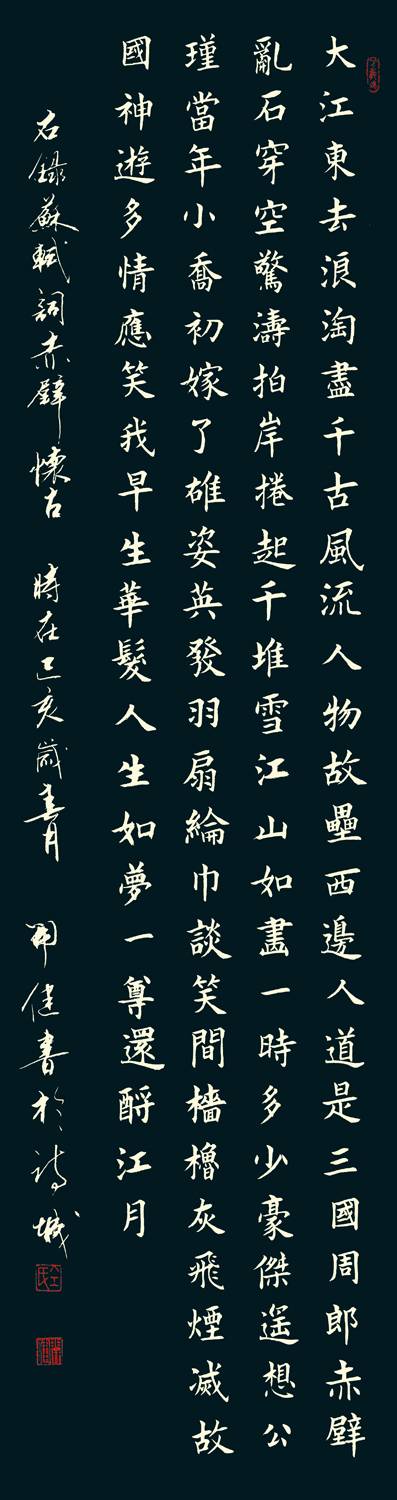 大江東去浪淘盡千古風流人物故壘西邊人道是三國周郎赤壁
亂石穿空驚濤拍岸捲起千堆雪江山如畫一時多少豪傑遥想公
瑾當年小喬初嫁了雄姿英發羽扇綸巾談笑間檣櫓灰飛煙滅故
國神遊多情應笑我早生華髮人生如夢一尊還酹江月
右錄蘇軾詞赤壁懷古 時在己亥歲春月 開健書於詩城